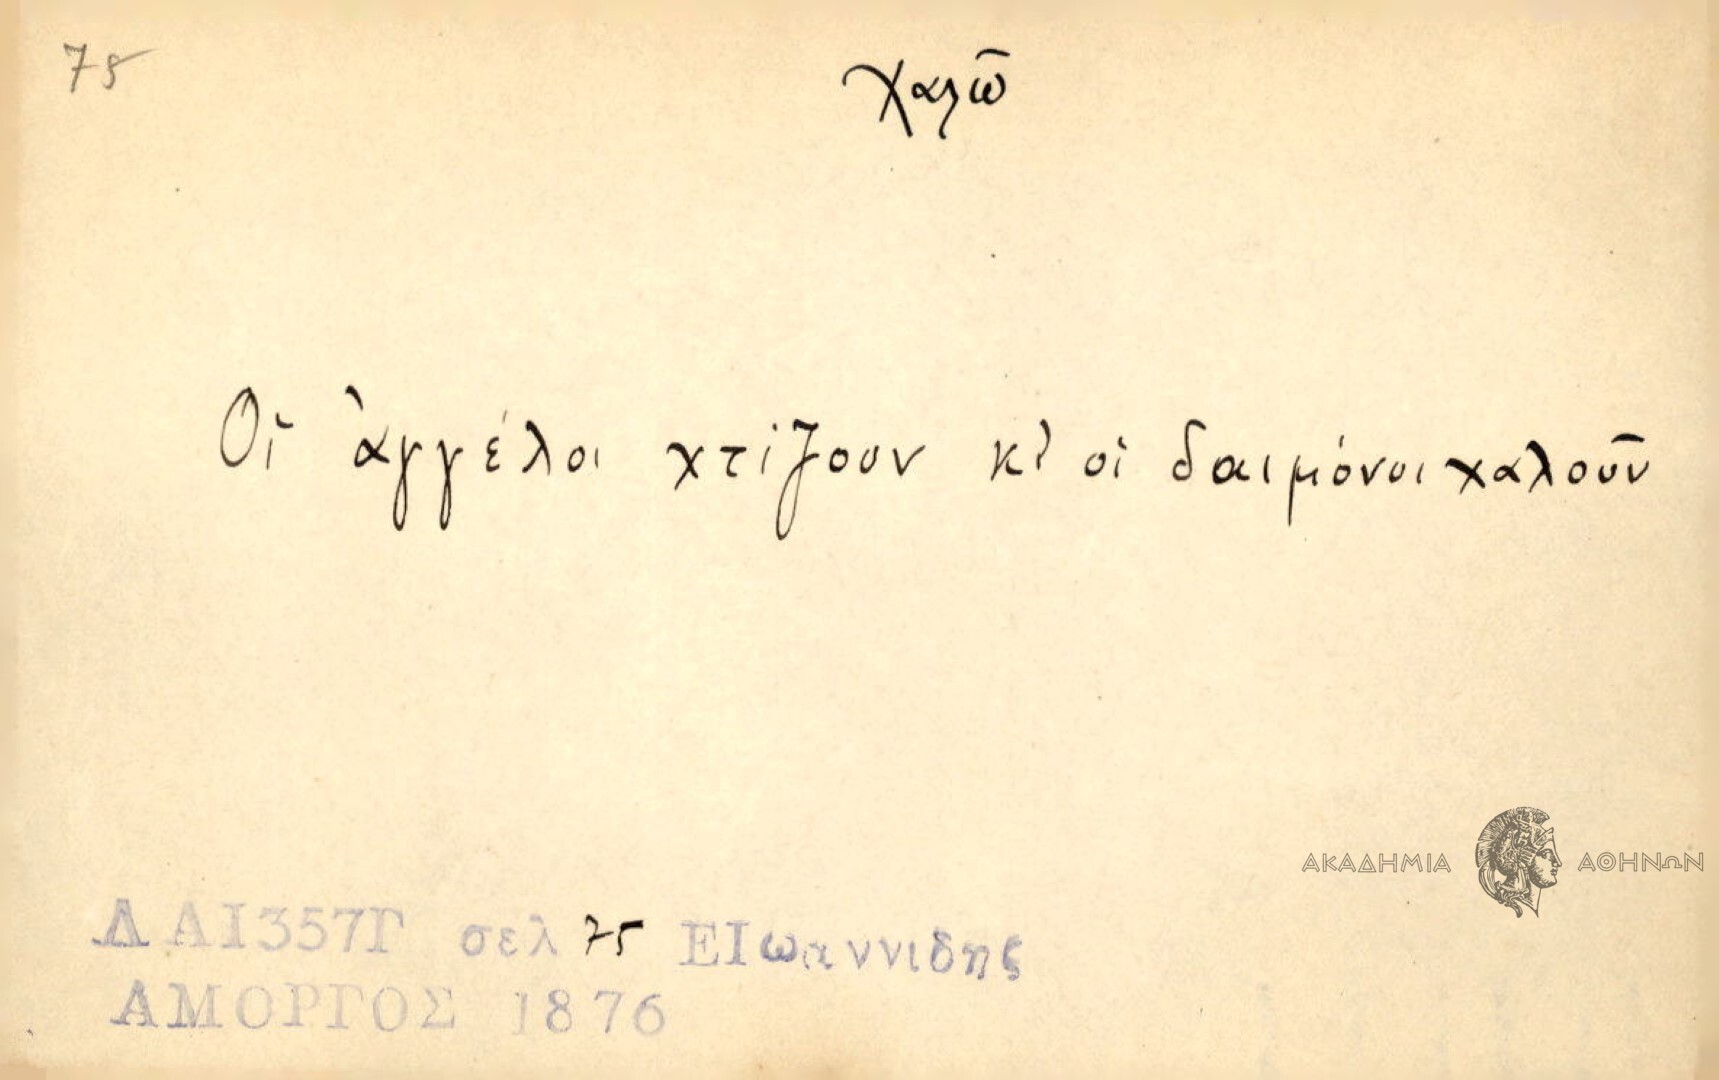 75
χαλῶ
Οἱ ἀγγέλοι χτίζουν κ' οἱ δαιμόνοι χαλοῦν
ΑΚΑΔΗΜΙΑ ΑΘΗΝΩΝ
Δ ΑΙ357Γ σελ 75 ΕΙωαννιδης
ΑΜΟΡΓΟΣ 1876